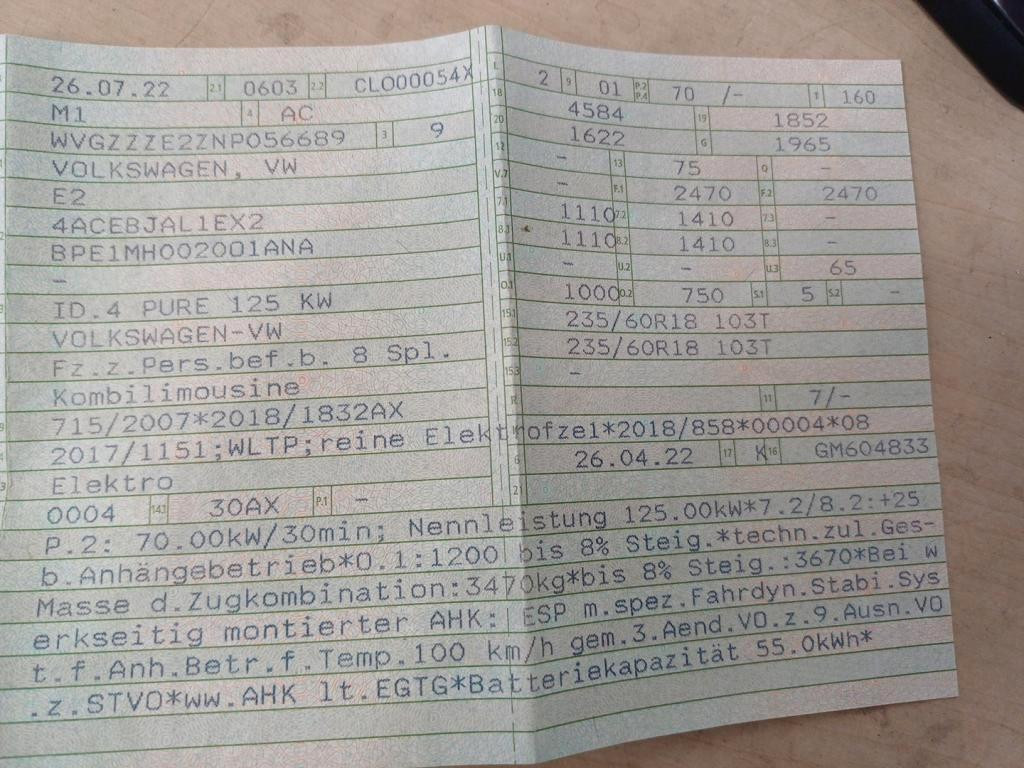 26.07.22 2.1 0603 2.2 CLO00054X
M1 4 AC
WVGZZZE2ZNP056689 3 9
VOLKSWAGEN, VW
E2
4ACEBJAL1EX2
BPE1MH002001ANA
–
ID.4 PURE 125 KW
VOLKSWAGEN-VW
Fz.z.Pers.bef.b. 8 Spl.
Kombilimousine
715/2007*2018/1832AX
2017/1151;WLTP;reine Elektrofze1*2018/858*00004*08
Elektro
0004 14.1 30AX P.1 –
L 2 9 01 P.2 P.4 70 /– T 160
18 4584 19 1852
20 1622 G 1965
12 – 13 75 Q –
V.7 – F.1 2470 F.2 2470
7.1 1110 7.2 1410 7.3 –
8.1 1110 8.2 1410 8.3 –
U.1 – U.2 – U.3 65
O.1 1000 O.2 750 S.1 5 S.2 –
15.1 235/60R18 103T
15.2 235/60R18 103T
15.3 –
R 11 7/–
6 26.04.22 17 K 16 GM604833
21
P.2: 70.00kW/30min; Nennleistung 125.00kW*7.2/8.2:+25
b.Anhängebetrieb*O.1:1200 bis 8% Steig.*techn.zul.Ges-
Masse d.Zugkombination:3470kg*bis 8% Steig.:3670*Bei w
erkseitig montierter AHK: ESP m.spez.Fahrdyn.Stabi.Sys
t.f.Anh.Betr.f.Temp.100 km/h gem.3.Aend.VO.z.9.Ausn.VO
.z.STVO*ww.AHK lt.EGTG*Batteriekapazität 55.0kWh*